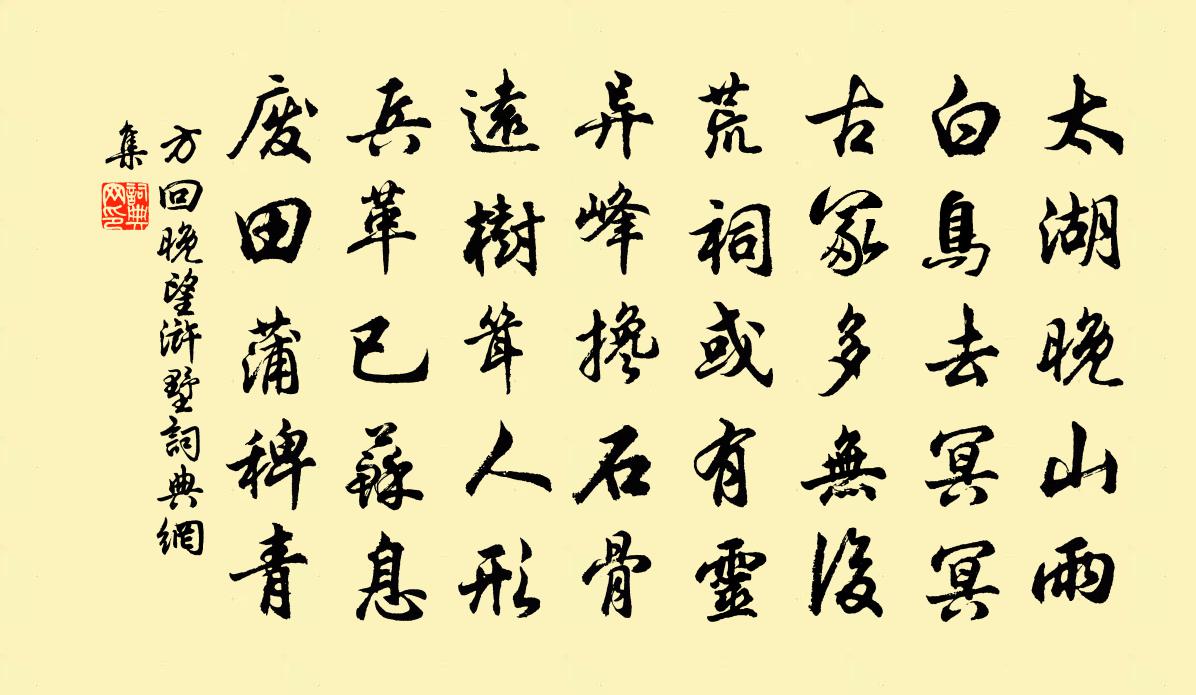 太湖晚山雨
白鳥去冥冥
古冢多無後
荒祠或有靈
异峰攙石骨
遠樹聳人形
兵革已蘇息
廢田蒲稗青
方回晚望滸墅詞典網
集
詞典網印